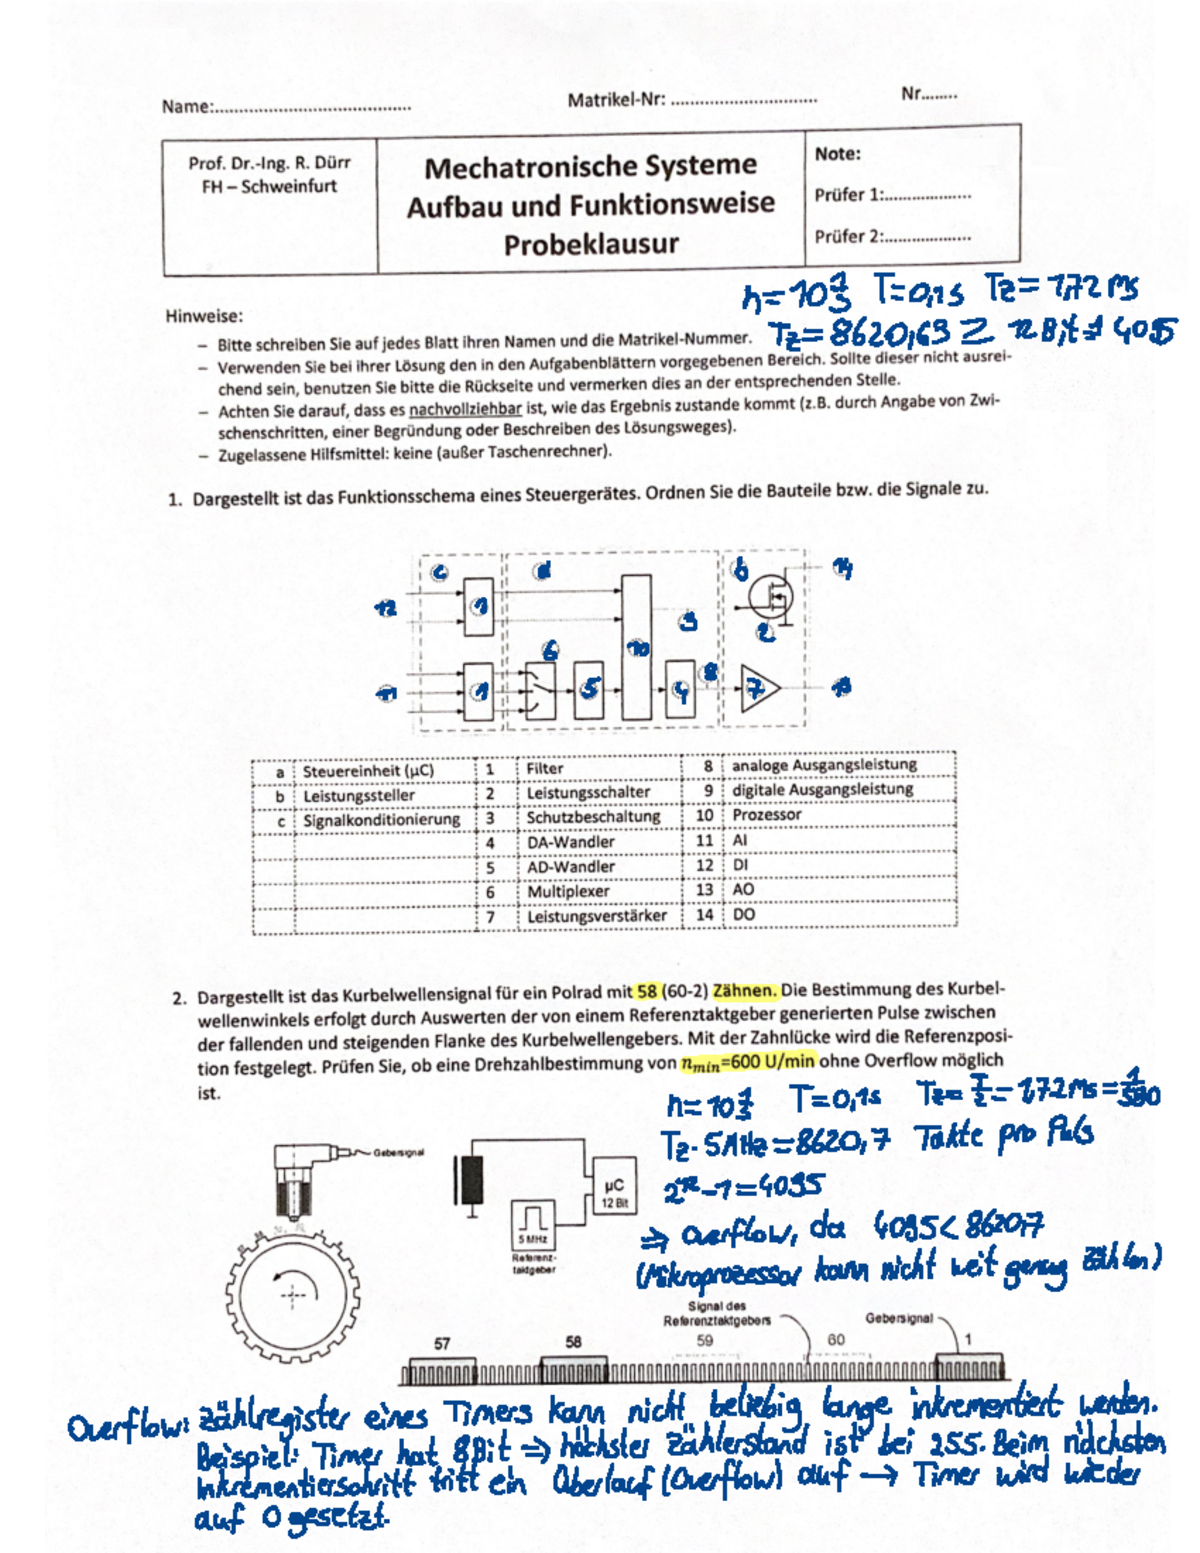 Name:........................................
Matrikel-Nr: ..............................
Nr........
Prof. Dr.-Ing. R. Dürr
FH – Schweinfurt
Mechatronische Systeme
Aufbau und Funktionsweise
Probeklausur
Note:
Prüfer 1:..................
Prüfer 2:..................
n=10 1/s T=0,1s Tz=1,72ms
Hinweise:
Tz=8620,69 12Bit 4095
– Bitte schreiben Sie auf jedes Blatt ihren Namen und die Matrikel-Nummer.
– Verwenden Sie bei ihrer Lösung den in den Aufgabenblättern vorgegebenen Bereich. Sollte dieser nicht ausrei-
chend sein, benutzen Sie bitte die Rückseite und vermerken dies an der entsprechenden Stelle.
– Achten Sie darauf, dass es nachvollziehbar ist, wie das Ergebnis zustande kommt (z.B. durch Angabe von Zwi-
schenschritten, einer Begründung oder Beschreiben des Lösungsweges).
– Zugelassene Hilfsmittel: keine (außer Taschenrechner).
1. Dargestellt ist das Funktionsschema eines Steuergerätes. Ordnen Sie die Bauteile bzw. die Signale zu.
c a b 14
12 1 9 2
6 10
11 1 5 4 8 7 13
a Steuereinheit (µC) 1 Filter 8 analoge Ausgangsleistung
b Leistungssteller 2 Leistungsschalter 9 digitale Ausgangsleistung
c Signalkonditionierung 3 Schutzbeschaltung 10 Prozessor
4 DA-Wandler 11 AI
5 AD-Wandler 12 DI
6 Multiplexer 13 AO
7 Leistungsverstärker 14 DO
2. Dargestellt ist das Kurbelwellensignal für ein Polrad mit 58 (60-2) Zähnen. Die Bestimmung des Kurbel-
wellenwinkels erfolgt durch Auswerten der von einem Referenztaktgeber generierten Pulse zwischen
der fallenden und steigenden Flanke des Kurbelwellengebers. Mit der Zahnlücke wird die Referenzposi-
tion festgelegt. Prüfen Sie, ob eine Drehzahlbestimmung von nmin=600 U/min ohne Overflow möglich
ist.
n=10 1/s T=0,1s Tz=T/z=1,72ms=1/580
Tz·5MHz=8620,7 Takte pro Puls
2^12-1=4095
⇒ Overflow, da 4095<8620,7
(Mikroprozessor kann nicht weit genug zählen)
Gebersignal
µC
12 Bit
5 MHz
Referenz-
taktgeber
Signal des
Referenztaktgebers
Gebersignal
57 58 59 60 1
Overflow: Zählregister eines Timers kann nicht beliebig lange inkrementiert werden.
Beispiel: Timer hat 8Bit ⇒ höchster Zählerstand ist bei 255. Beim nächsten
Inkrementierschritt tritt ein Überlauf (Overflow) auf → Timer wird wieder
auf 0 gesetzt.